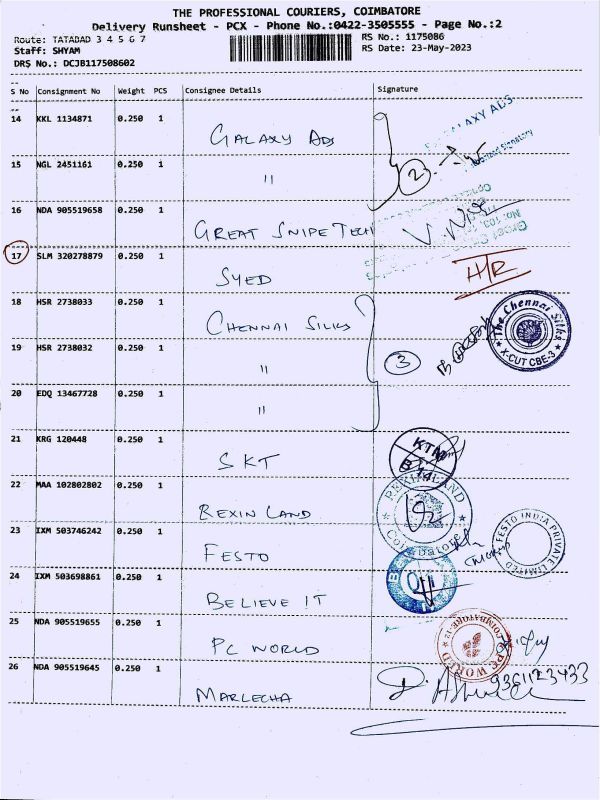 THE PROFESSIONAL COURIERS, COIMBATORE
Delivery Runsheet - PCX - Phone No.:0422-3505555 - Page No.:2
Route: TATABAD 3 4 5 6 7
RS No.: 1175086
Staff: SHYAM
RS Date: 23-May-2023
DRS No.: DCJB117508602
S No Consignment No Weight PCS Consignee Details Signature
14 KKL 1134871 0.250 1 GALAXY ADS
GALAXY ADS
Authorised Signatory
15 NGL 2451161 0.250 1 "
2
16 NDA 905519658 0.250 1 GREAT SNIPE TECH
17 SLM 320278879 0.250 1 SYED
18 HSR 2738033 0.250 1 CHENNAI SILKS
The Chennai Silks
X-CUT CBE-3
19 HSR 2738032 0.250 1 "
3
20 EDQ 13467728 0.250 1 "
21 KRG 120448 0.250 1 SKT
KTM
22 MAA 102802802 0.250 1 REXIN LAND
REXIN LAND
Coimbatore
23 IXM 503746242 0.250 1 FESTO
FESTO INDIA PRIVATE LIMITED
24 IXM 503698861 0.250 1 BELIEVE IT
25 NDA 905519655 0.250 1 PC WORLD
PC WORLD
COIMBATORE-12
26 NDA 905519645 0.250 1 MARLECHA
9361123433